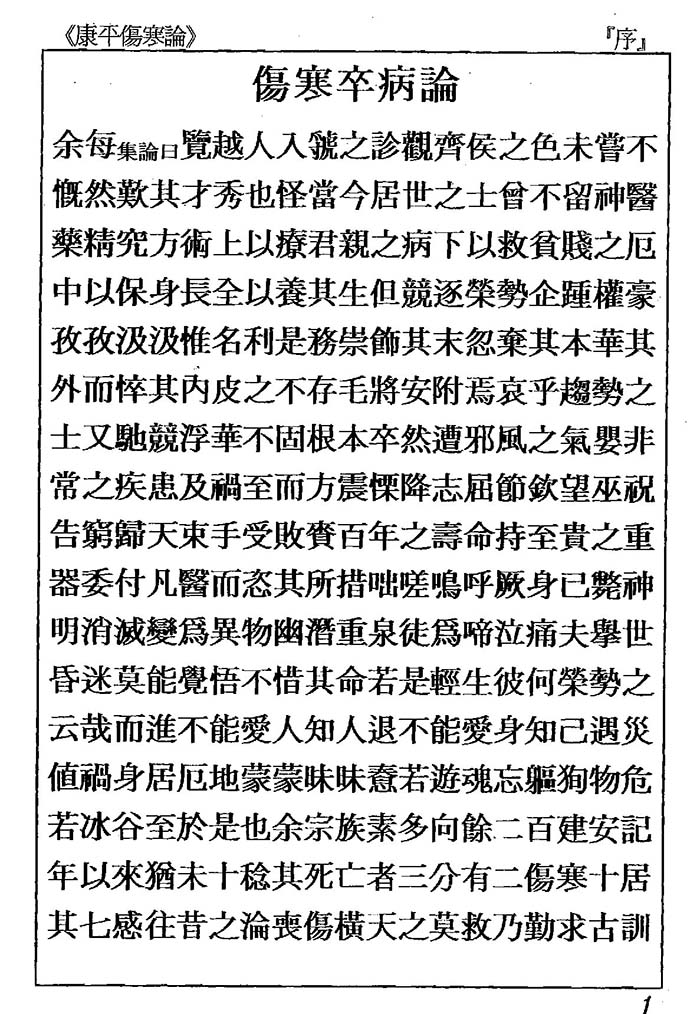 《康平傷寒論》 『序』
傷寒卒病論
余每集論曰覽越人入虢之診觀齊侯之色未嘗不
慨然歎其才秀也怪當今居世之士曾不留神醫
藥精究方術上以療君親之病下以救貧賤之厄
中以保身長全以養其生但競逐榮勢企踵權豪
孜孜汲汲惟名利是務崇飾其末忽棄其本華其
外而悴其內皮之不存毛將安附焉哀乎趨勢之
士又馳競浮華不固根本卒然遭邪風之氣嬰非
常之疾患及禍至而方震慄降志屈節欽望巫祝
告窮歸天束手受敗賫百年之壽命持至貴之重
器委付凡醫而恣其所措咄嗟嗚呼厥身已斃神
明消滅變爲異物幽潛重泉徒爲啼泣痛夫舉世
昏迷莫能覺悟不惜其命若是輕生彼何榮勢之
云哉而進不能愛人知人退不能愛身知己遇災
値禍身居厄地蒙蒙昧昧惷若遊魂忘軀狥物危
若冰谷至於是也余宗族素多向餘二百建安記
年以來猶未十稔其死亡者三分有二傷寒十居
其七感往昔之淪喪傷橫夭之莫救乃勤求古訓
1